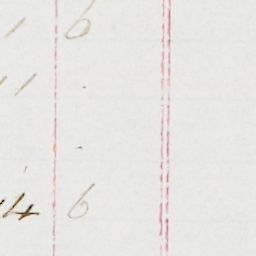 1 6
11 .
14 6